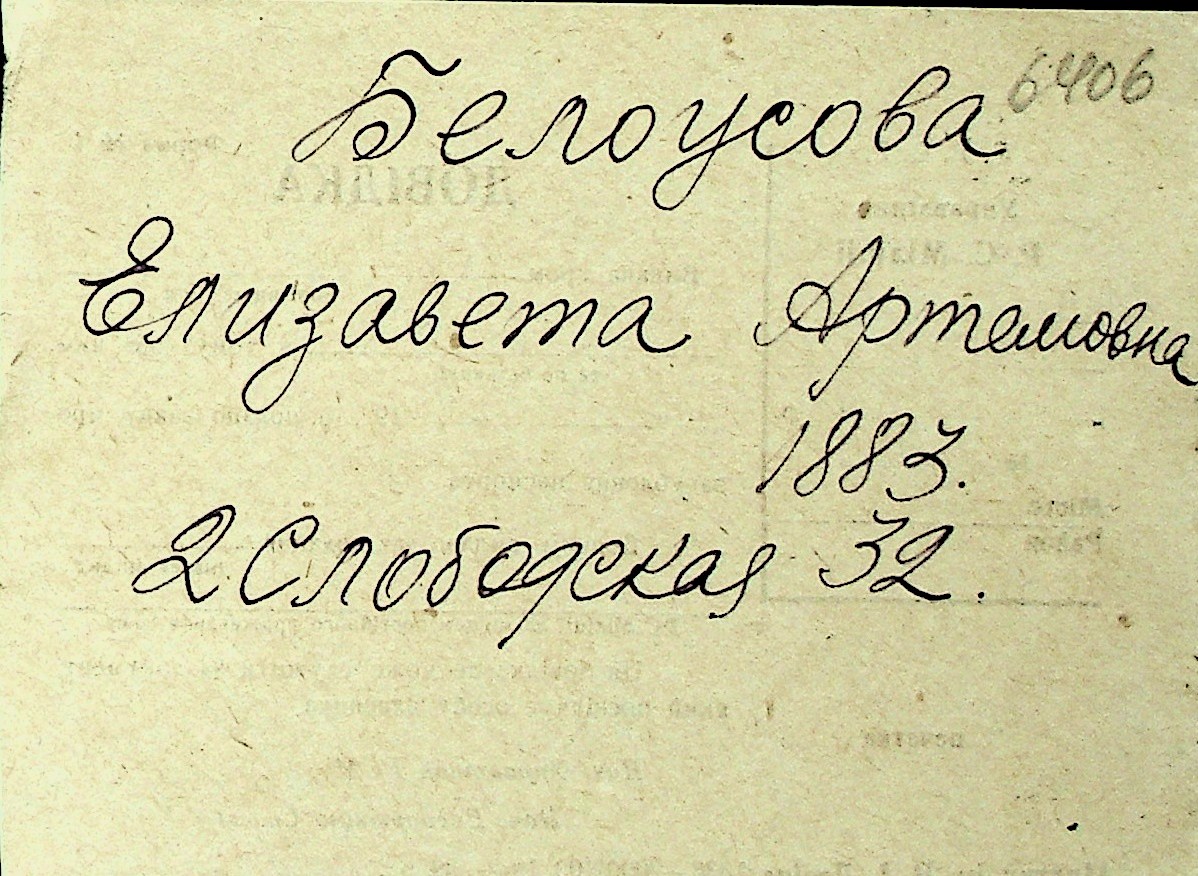 Белоусова 6406
Елизавета Артемовна
1883.
2 Слободская 32.